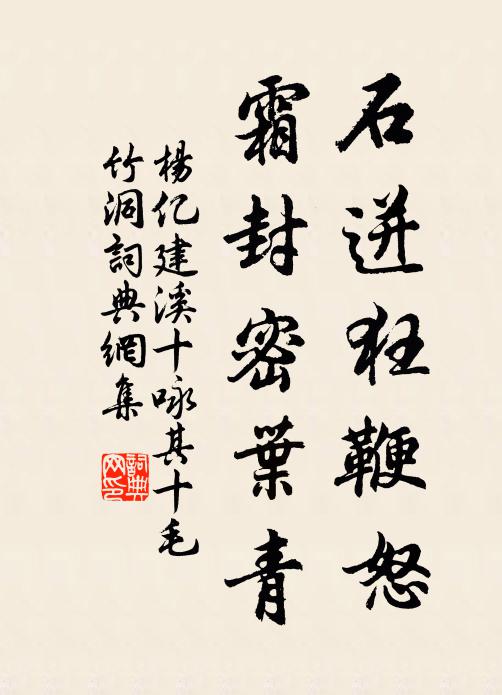 石迸狂鞭怒
霜封密葉青
楊億建溪十咏其十毛
竹洞詞典網集
詞典网印